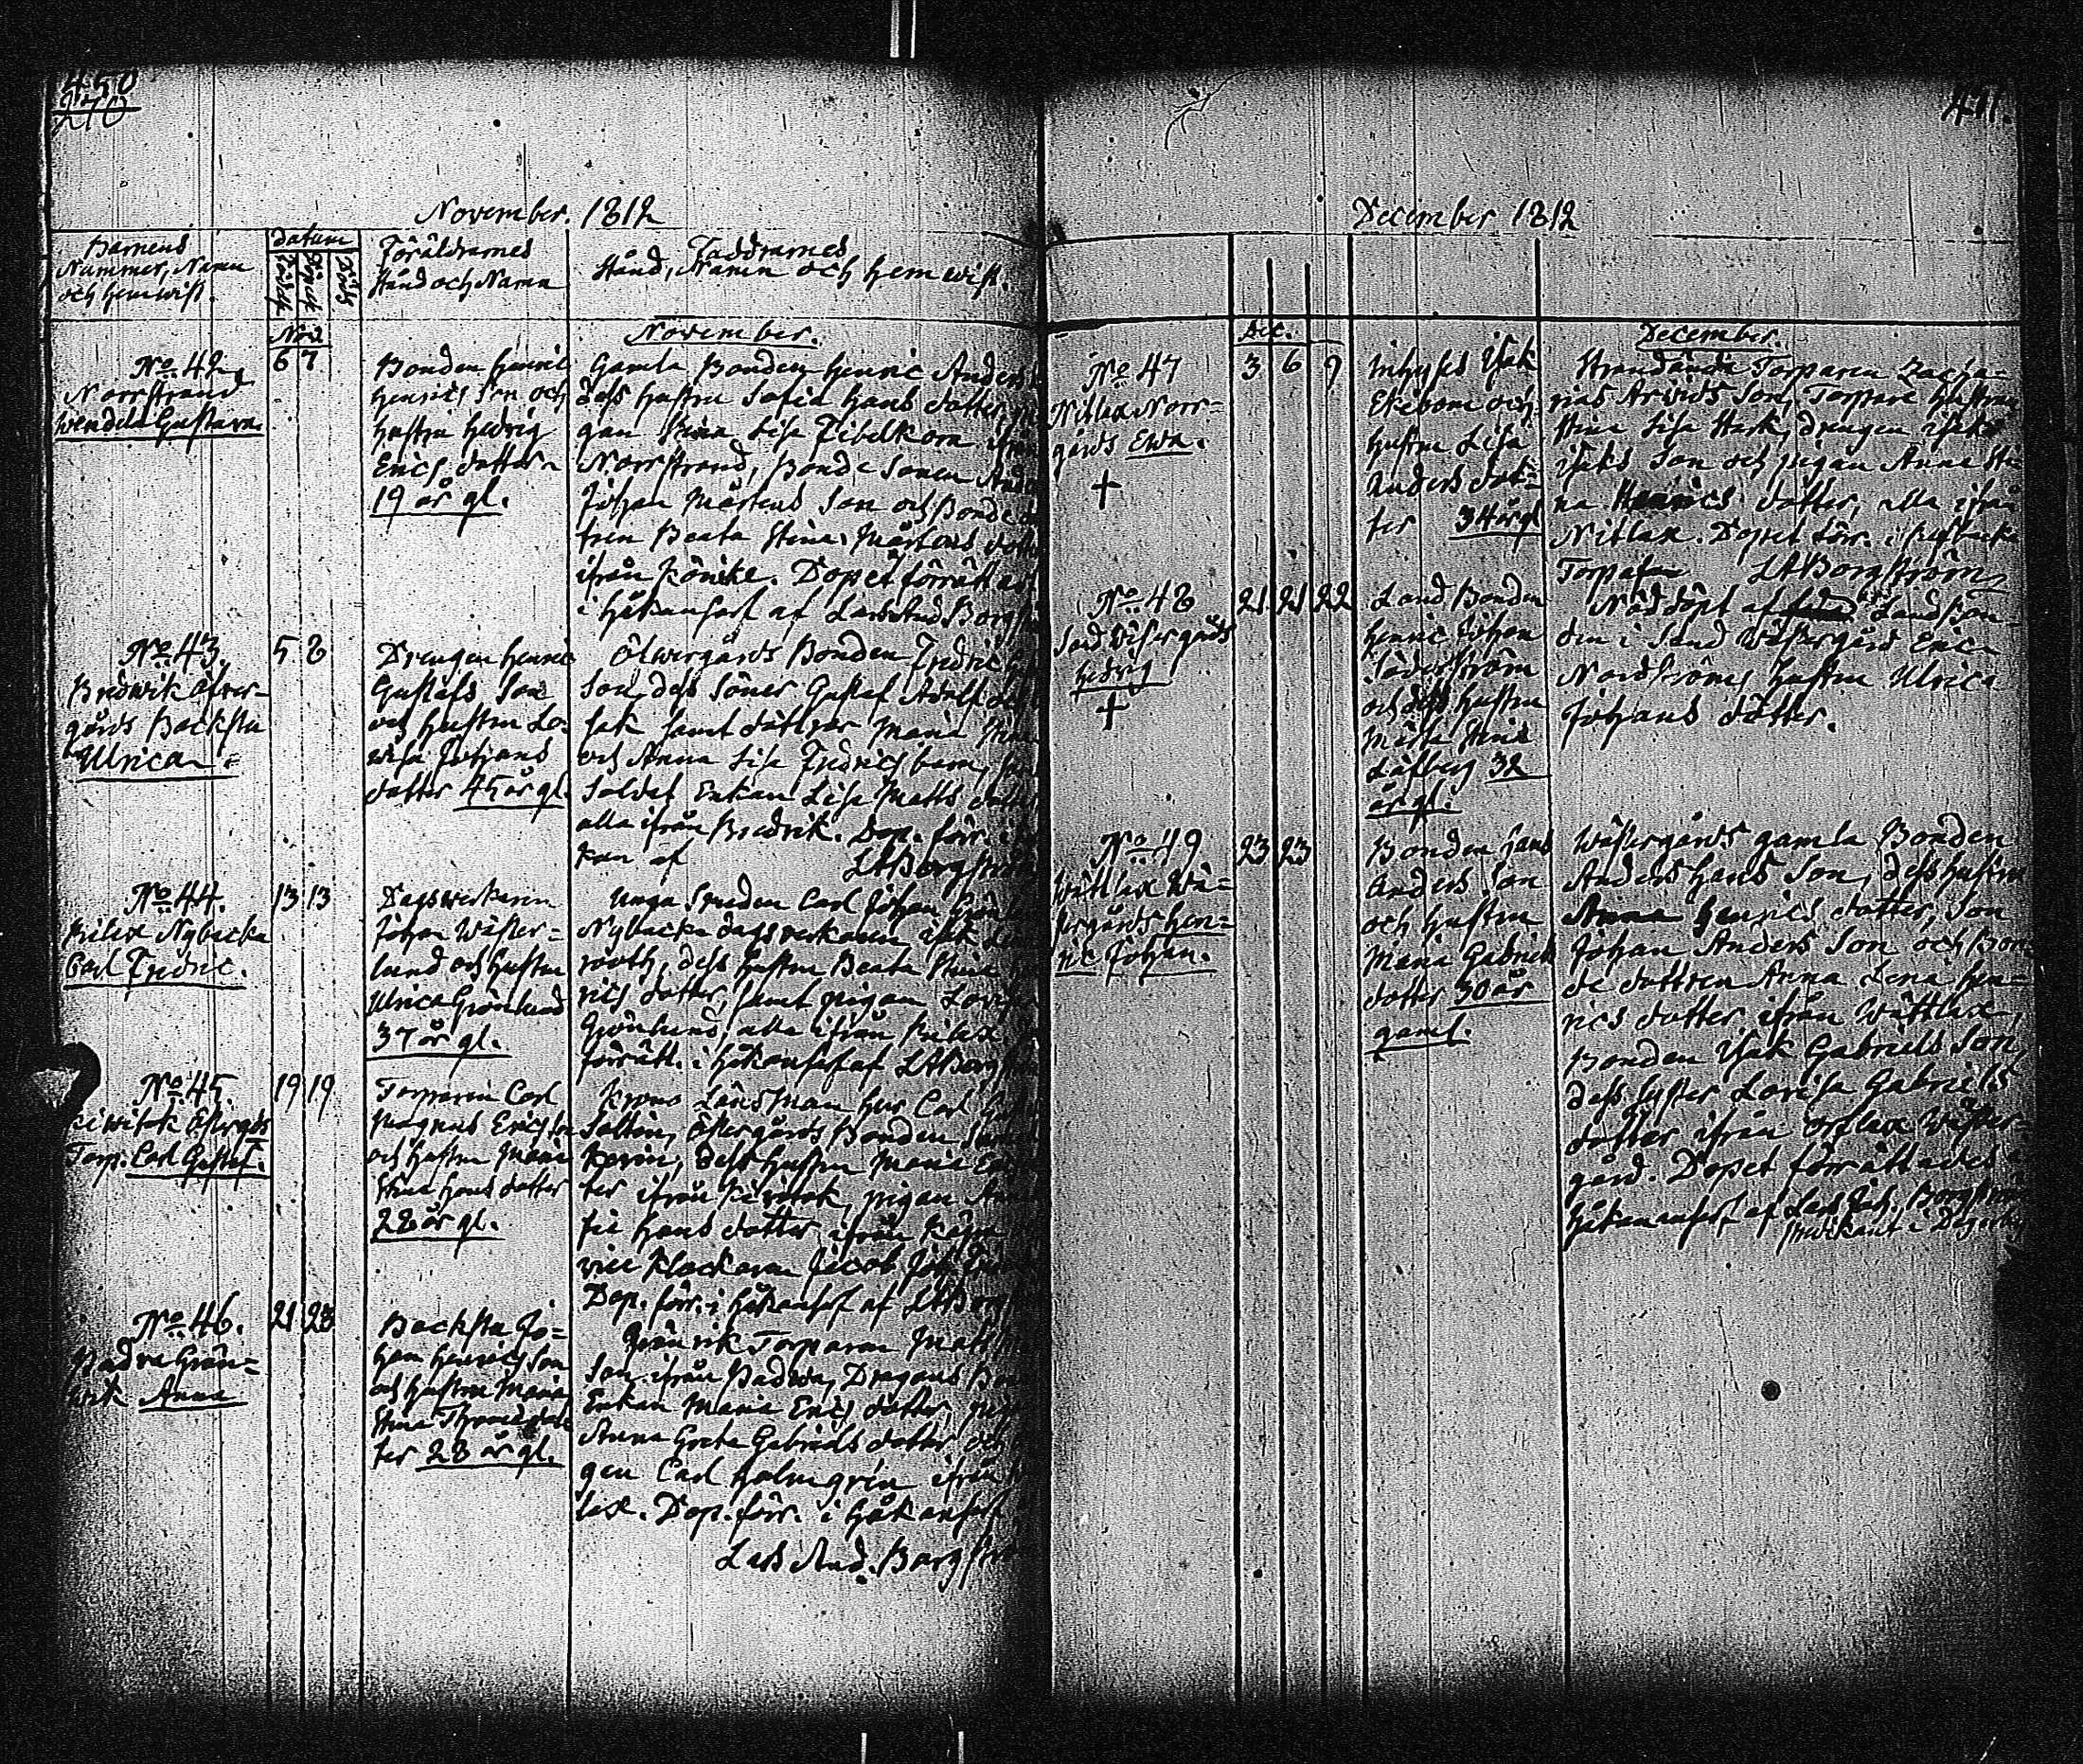 450
270
November. 1812
Barnens
Nummer, Namn
och hemwist.
Datum
Födelse
Döpelse
Föräldrarnes
Stånd och Namn
Faddrarnes
Stånd, Namn och hemwist.
Nov.
November.
No. 42.
Norrstrand
Wendela Gustava.
6 7
Bonden Henric
Henrics Son och
hustru Hedvig
Erics dotter
19 år gl.
Gamla Bonden Henric Anders
dess hustru Sofia Hans dotter,
gan Stina Lisa Fibelkorn ifrån
Norrstrand, Bonde Sonen
Johan Mårtens Son och Bonde
tren Beata Stina Mårtens dotter
ifrån Könike. Dopet förrättades
i Håkansarf af Lars And. Borgst
No. 43.
Bredwik Öfver-
gårds Backstu
Ulrica
5 8
Drengen Henric
Gustafs Son
och hustru Lo-
wisa Johans
dotter 45 år gl.
Öfwergårds Bonden Fredric
Son, dess Söner Gustaf Adolf och
sak samt döttrar Maria Stina
och Anna Lisa Fredrics barn,
Soldat Enkan Lisa Matts dotter
alla ifrån Bredvik. Dop. förr. i
kan af LABorgström
No. 44.
Rilax Nybacka
Carl Fredric.
13 13
Dagswerkaren
Johan Wäster-
lund och hustru
Ulrica Grönlund
37 år gl.
Unga Smeden Carl Johan Grönlund
Nybacka dagsverkaren Isak
rooth, dess hustru Beata Stina
rics dotter, samt pigan Lovisa
Grönlund, alla ifrån Rilax
förrätt. i Håkansarf af LABorgström
No. 45.
Kiwitok Östergds
Torp. Carl Gustaf.
19 19
Torparen Carl
Magnus Ericsson
och hustru Maria
Stina Hans dotter
28 år gl.
Krono Länsman Herr Carl
Saltin, Östergårds Bonden
Kevin, dess hustru Maria
ter ifrån Kivitok, pigan Anna
fie Hans dotter ifrån
vice Klockaren Jacob Joh.
Dop. förr. i Håkansarf af LABorg
No. 46.
Padva Grön-
wik Anna
21 28
Backstu Jo-
han Henrics Son
och hustru Maria
Stina Thomæ dot
ter 28 år gl.
Grönvik Torparen Matts
Son ifrån Padva, Dragons
Enkan Maria Erics dotter,
Anna Greta Gabriels dotter och
gen Carl Holmgrén ifrån
lax. Dop. förr. i Håkansarf
Lars And. Borgström
471.
December 1812
Dec.
December.
No. 47
Nitlax Norr-
gårds Ewa.
†
3 6 9
Inhyses Isak
Ekebom och
hustru Lisa
Anders dot-
ter 34 år gl
Strandända Torparen Zacha-
rias Arvids Son, Torpare hustrun
Stina Lisa Stark, drengen Isak
Isaks Son och pigan Anna Sti-
na Henrics dotter, alla ifrån
Nitlax. Dopet förr. i
Torpet LABorgström
No. 48
Sand Wästergårds
Hedvig
†
21 21 22
Land Bonden
Henric Johan
Söderström
och dess hustru
Maja Stina
Löfberg 32
år gl.
Nöddöpt af Landbon-
den i Sand Wästergård Eric
Nordströms hustru Ulrica
Johans dotter.
No. 49
Wättlax Wä-
stergårds Hen-
ric Johan.
23 23
Bonden Hans
Anders Son
och hustru
Maria Gabriels
dotter 30 år
gaml.
Wästergårds gamla Bonden
Anders Hans Son, dess hustru
Anna Henrics dotter, Son
Johan Anders Son och Bon-
de dottren Anna Lena Hen-
rics dotter ifrån Wättlax,
Bonden Isak Gabriels Son,
dess syster Lovisa Gabriels
dotter ifrån Orslax Wäster-
gård. Dopet förrättades
Håkanansarf af Lars And. Borgström
predikant i Degerby